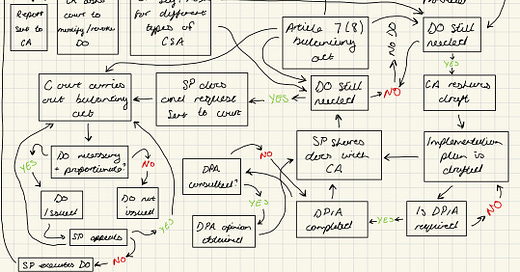 Report
sent to
CA
court to
modify/revoke
DO
for different
types of
CSA
Article 7(8)
balancing
act
NO DO
DO still
needed
YES
CA reviews
draft
Court carries
out balancing
act
SP docs
and request
sent to court
YES
DO still
needed
NO
DO necessary
+ proportionate?
YES
NO
DPA
consulted?
NO
SP shares
docs with
CA
Implementation
plan is
drafted
DO
issued
DO not
issued
YES
YES
DPA opinion
obtained
DPIA
completed
YES
Is DPIA
required
NO
SP appeals
SP executes DO
NO